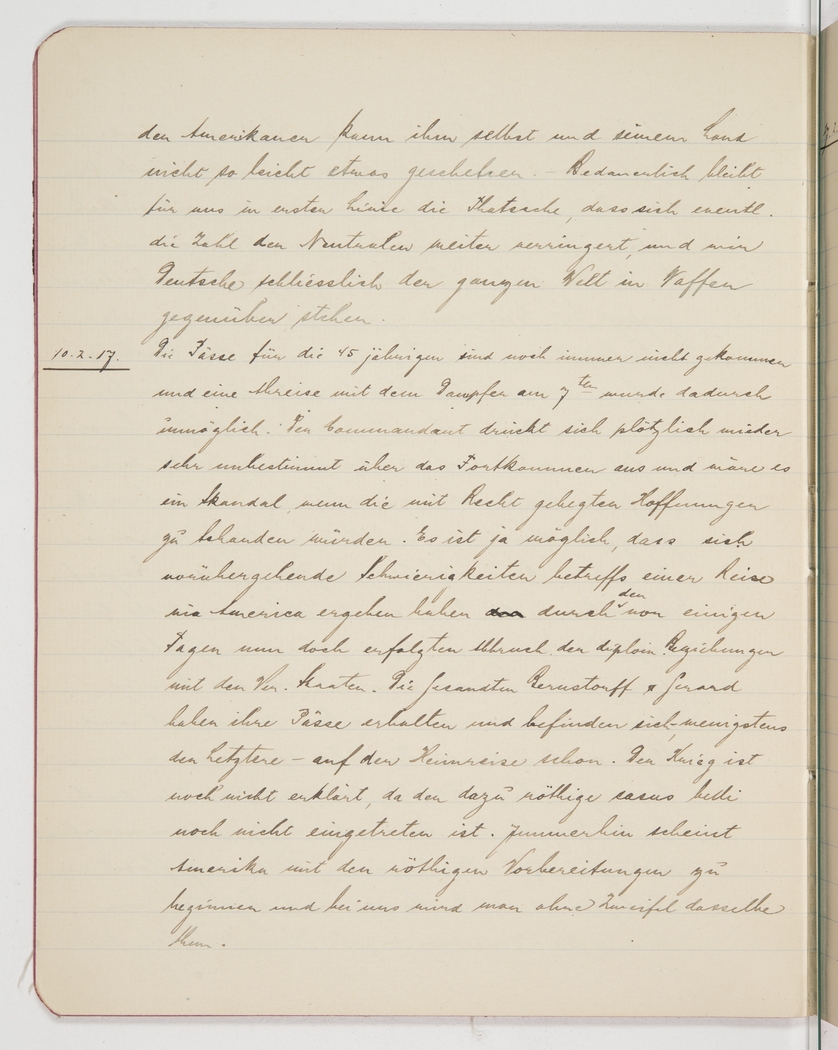 den Amerikanern kann ihm selbst und seinem Land
nicht so leicht etwas geschehen. – Bedauerlich bleibt
für uns in erster Linie die Thatsache, dass sich eventl.
die Zahl der Neutralen weiter verringert, und wir
Deutsche schliesslich der ganzen Welt in Waffen
gegenüber stehen.
10.2.17. Die Pässe für die 45 jährigen sind noch immer nicht gekommen
und eine Abreise mit dem Dampfer am 7ten wurde dadurch
unmöglich. Der Commandant drückt sich plötzlich wieder
sehr unbestimmt über das Fortkommen aus und wäre es
ein Skandal, wenn die mit Recht gehegten Hoffnungen
zu Schanden würden. Es ist ja möglich, dass sich
vorübergehende Schwierigkeiten betreffs einer Reise
via America ergeben haben durch den vor einigen
Tagen nun doch erfolgten Abbruch der diplom. Beziehungen
mit den Ver. Staaten. Die Gesandten Bernstorff & Gerard
haben ihre Pässe erhalten und befinden sich – wenigstens
der Letztere – auf der Heimreise schon. Der Krieg ist
noch nicht erklärt, da der dazu nöthige casus belli
noch nicht eingetreten ist. Immerhin scheint
Amerika mit den nöthigen Vorbereitungen zu
beginnen und bei uns wird man ohne Zweifel dasselbe
thun.